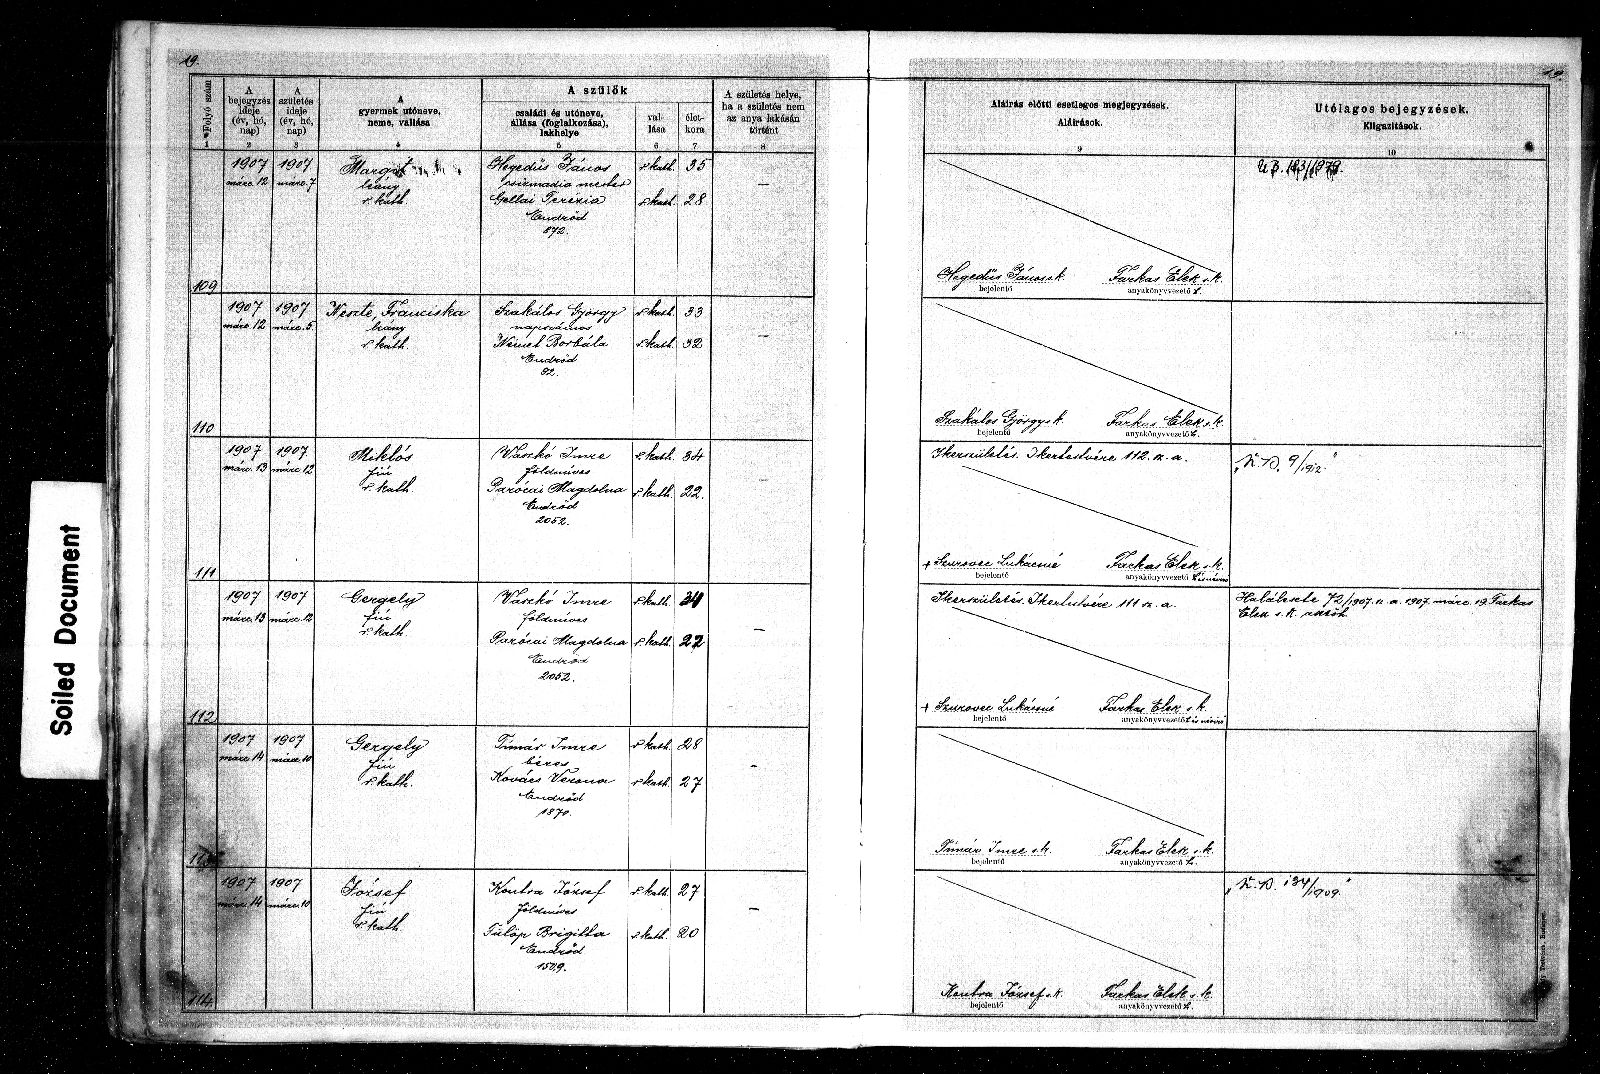 19.
19.
Folyó szám
A bejegyzés ideje (év, hó, nap)
A születés ideje (év, hó, nap)
A gyermek utóneve, neme, vallása
A szülők
családi és utóneve, állása (foglalkozása), lakhelye
vallása
életkora
A születés helye, ha a születés nem az anya lakásán történt
Aláírás előtti esetleges megjegyzések.
Aláírások.
Utólagos bejegyzések.
Kiigazítások.
1 2 3 4 5 6 7 8 9 10
1907 1907 Margit Hegedüs János r. kath. 35
márc. 12 márc. 7 leány csizmadia mester —
r. kath. Gellai Terézia r. kath. 28
Endrőd
872.
109
Hegedüs János k. Farkas Elek s. k.
bejelentő anyakönyvvezető
1907 1907 Neszte, Franciska Szakálos György r. kath. 33
márc. 12 márc. 5. leány napszámos —
r. kath. Német Borbála r. kath. 32
Endrőd
82.
110
Szakálos György k. Farkas Elek s. k.
bejelentő anyakönyvvezető
1907 1907 Miklós Vaszkó Imre r. kath. 34
márc. 13 márc. 12 fiú földmíves
r. kath. Parócai Magdolna r. kath. 22.
Endrőd
2052.
111
Ikerszületés. Ikertestvére 112. sz. a.
"K. B. 9/1912."
+ Szurovec Lukácsné Farkas Elek s. k.
bejelentő anyakönyvvezető és névíró
1907 1907 Gergely Vaszkó Imre r. kath. 34
márc. 13 márc. 12 fiú földmíves —
r. kath. Parócai Magdolna r. kath. 22
Endrőd
2052.
112
Ikerszületés. Ikertestvére 111 sz. a.
Halálesete 72/1907. sz. a. 1907. márc. 19. Farkas
Elek s. k.
+ Szurovec Lukácsné Farkas Elek s. k.
bejelentő anyakönyvvezető és névíró
1907 1907 Gergely Timár Imre r. kath. 28
márc. 14 márc. 10 fiú béres —
r. kath. Kovács Verona r. kath. 27
Endrőd
1870.
113
Timár Imre s. k. Farkas Elek s. k.
bejelentő anyakönyvvezető
1907 1907 József Kontra József r. kath. 27
márc. 14 márc. 10 fiú földmíves —
r. kath. Fülöp Brigitta r. kath. 20
Endrőd
1509.
114
"K. B. 134/1909."
Kontra József s. k. Farkas Elek s. k.
bejelentő anyakönyvvezető
Soiled Document